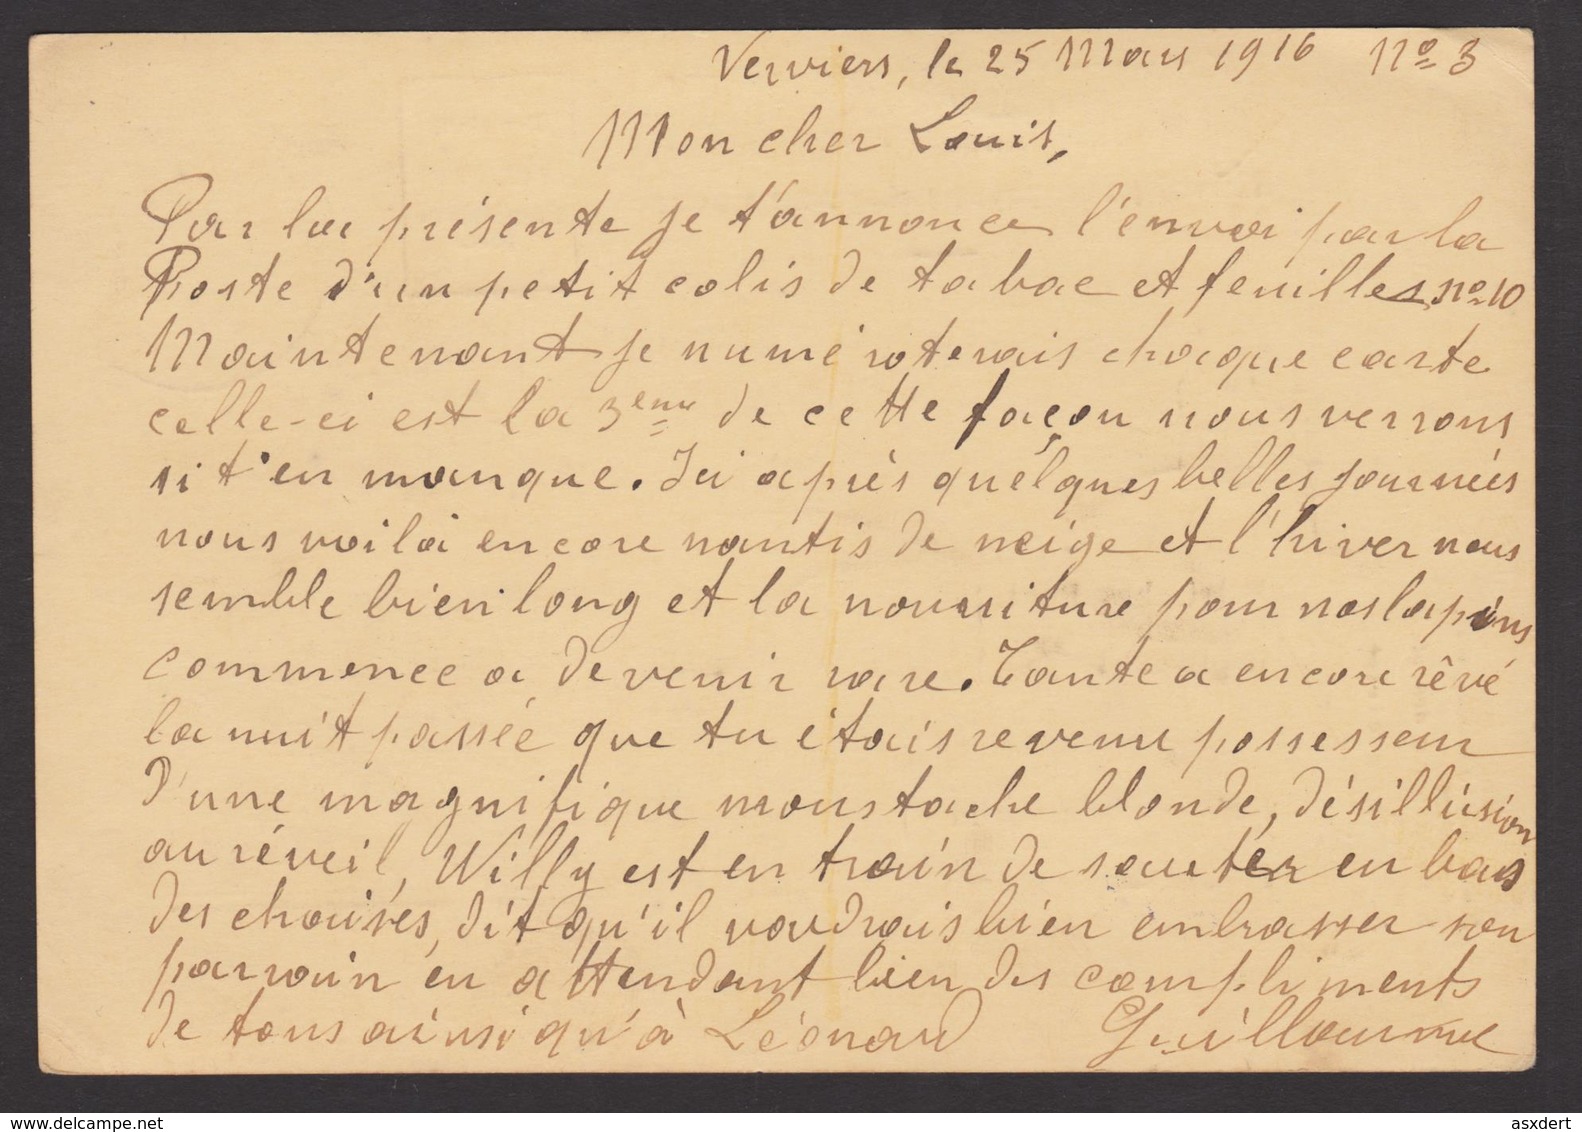 Verviers, le 25 Mars 1916 No 3
Mon cher Louis,
Par la présente je t'annonce l'envoi par la
Poste d'un petit colis de tabac et feuilles no 10
Maintenant je numéroterais chaque carte
celle-ci est la 3eme de cette façon nous verrons
si t'en manque. Ici après quelques belles journées
nous voilà encore nantis de neige et l'hiver nous
semble bien long et la nourriture pour nos lapins
commence a devenir rare. Tante a encore rêvé
la nuit passée que tu étais revenu possesseur
d'une magnifique moustache blonde, désillusion
au réveil, Willy est en train de sauter en bas
des chaises, dit qu'il voudrais bien embrasser son
parrain en attendant bien des compliments
de tous ainsi qu'à Léonard Guillaume
www.delcampe.net
asxdert